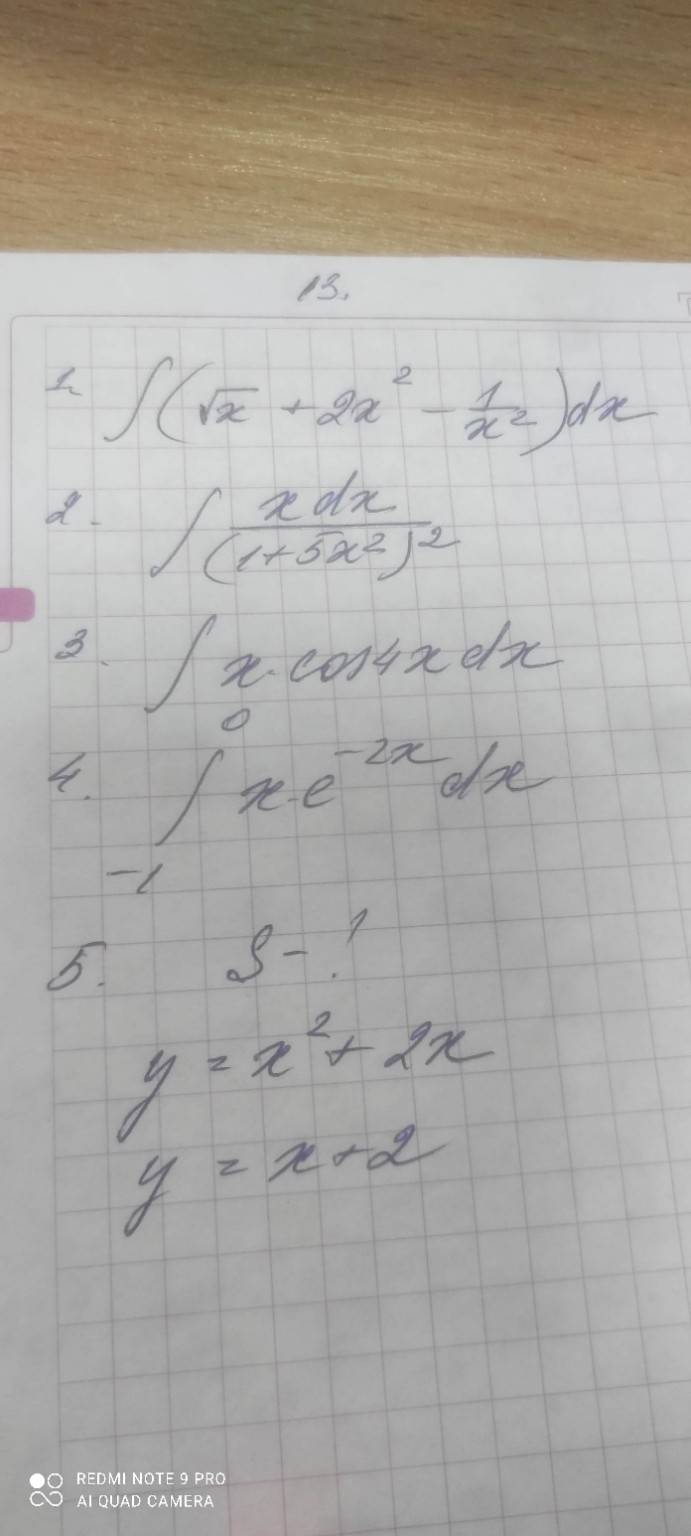 13.
1. ∫(√x + 2x² - 1/x²)dx
2. ∫ x dx/(1+5x²)²
3. ∫ x·cos4x dx
0
4. ∫ x·e^(-2x) dx
-1
5. S-?
y = x² + 2x
y = x+2
REDMI NOTE 9 PRO
AI QUAD CAMERA